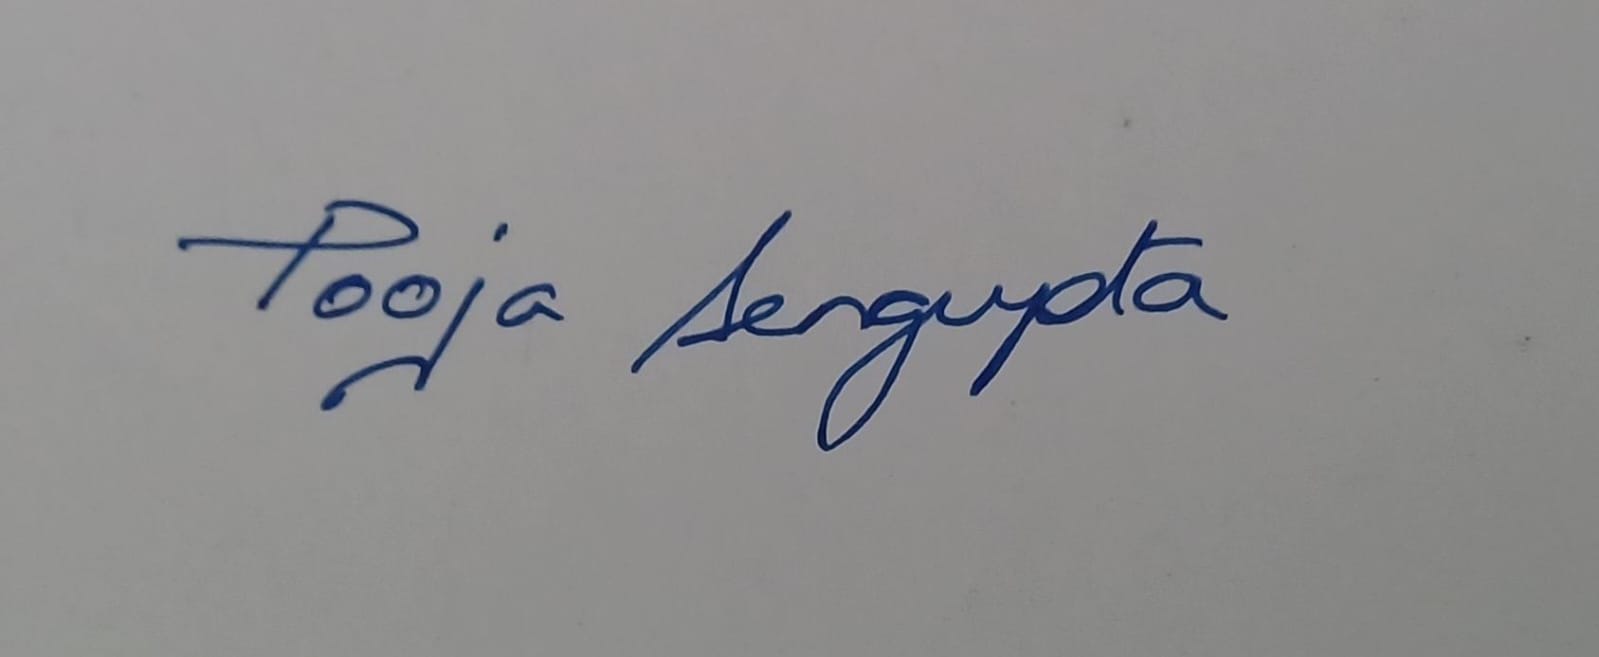 Pooja Sengupta